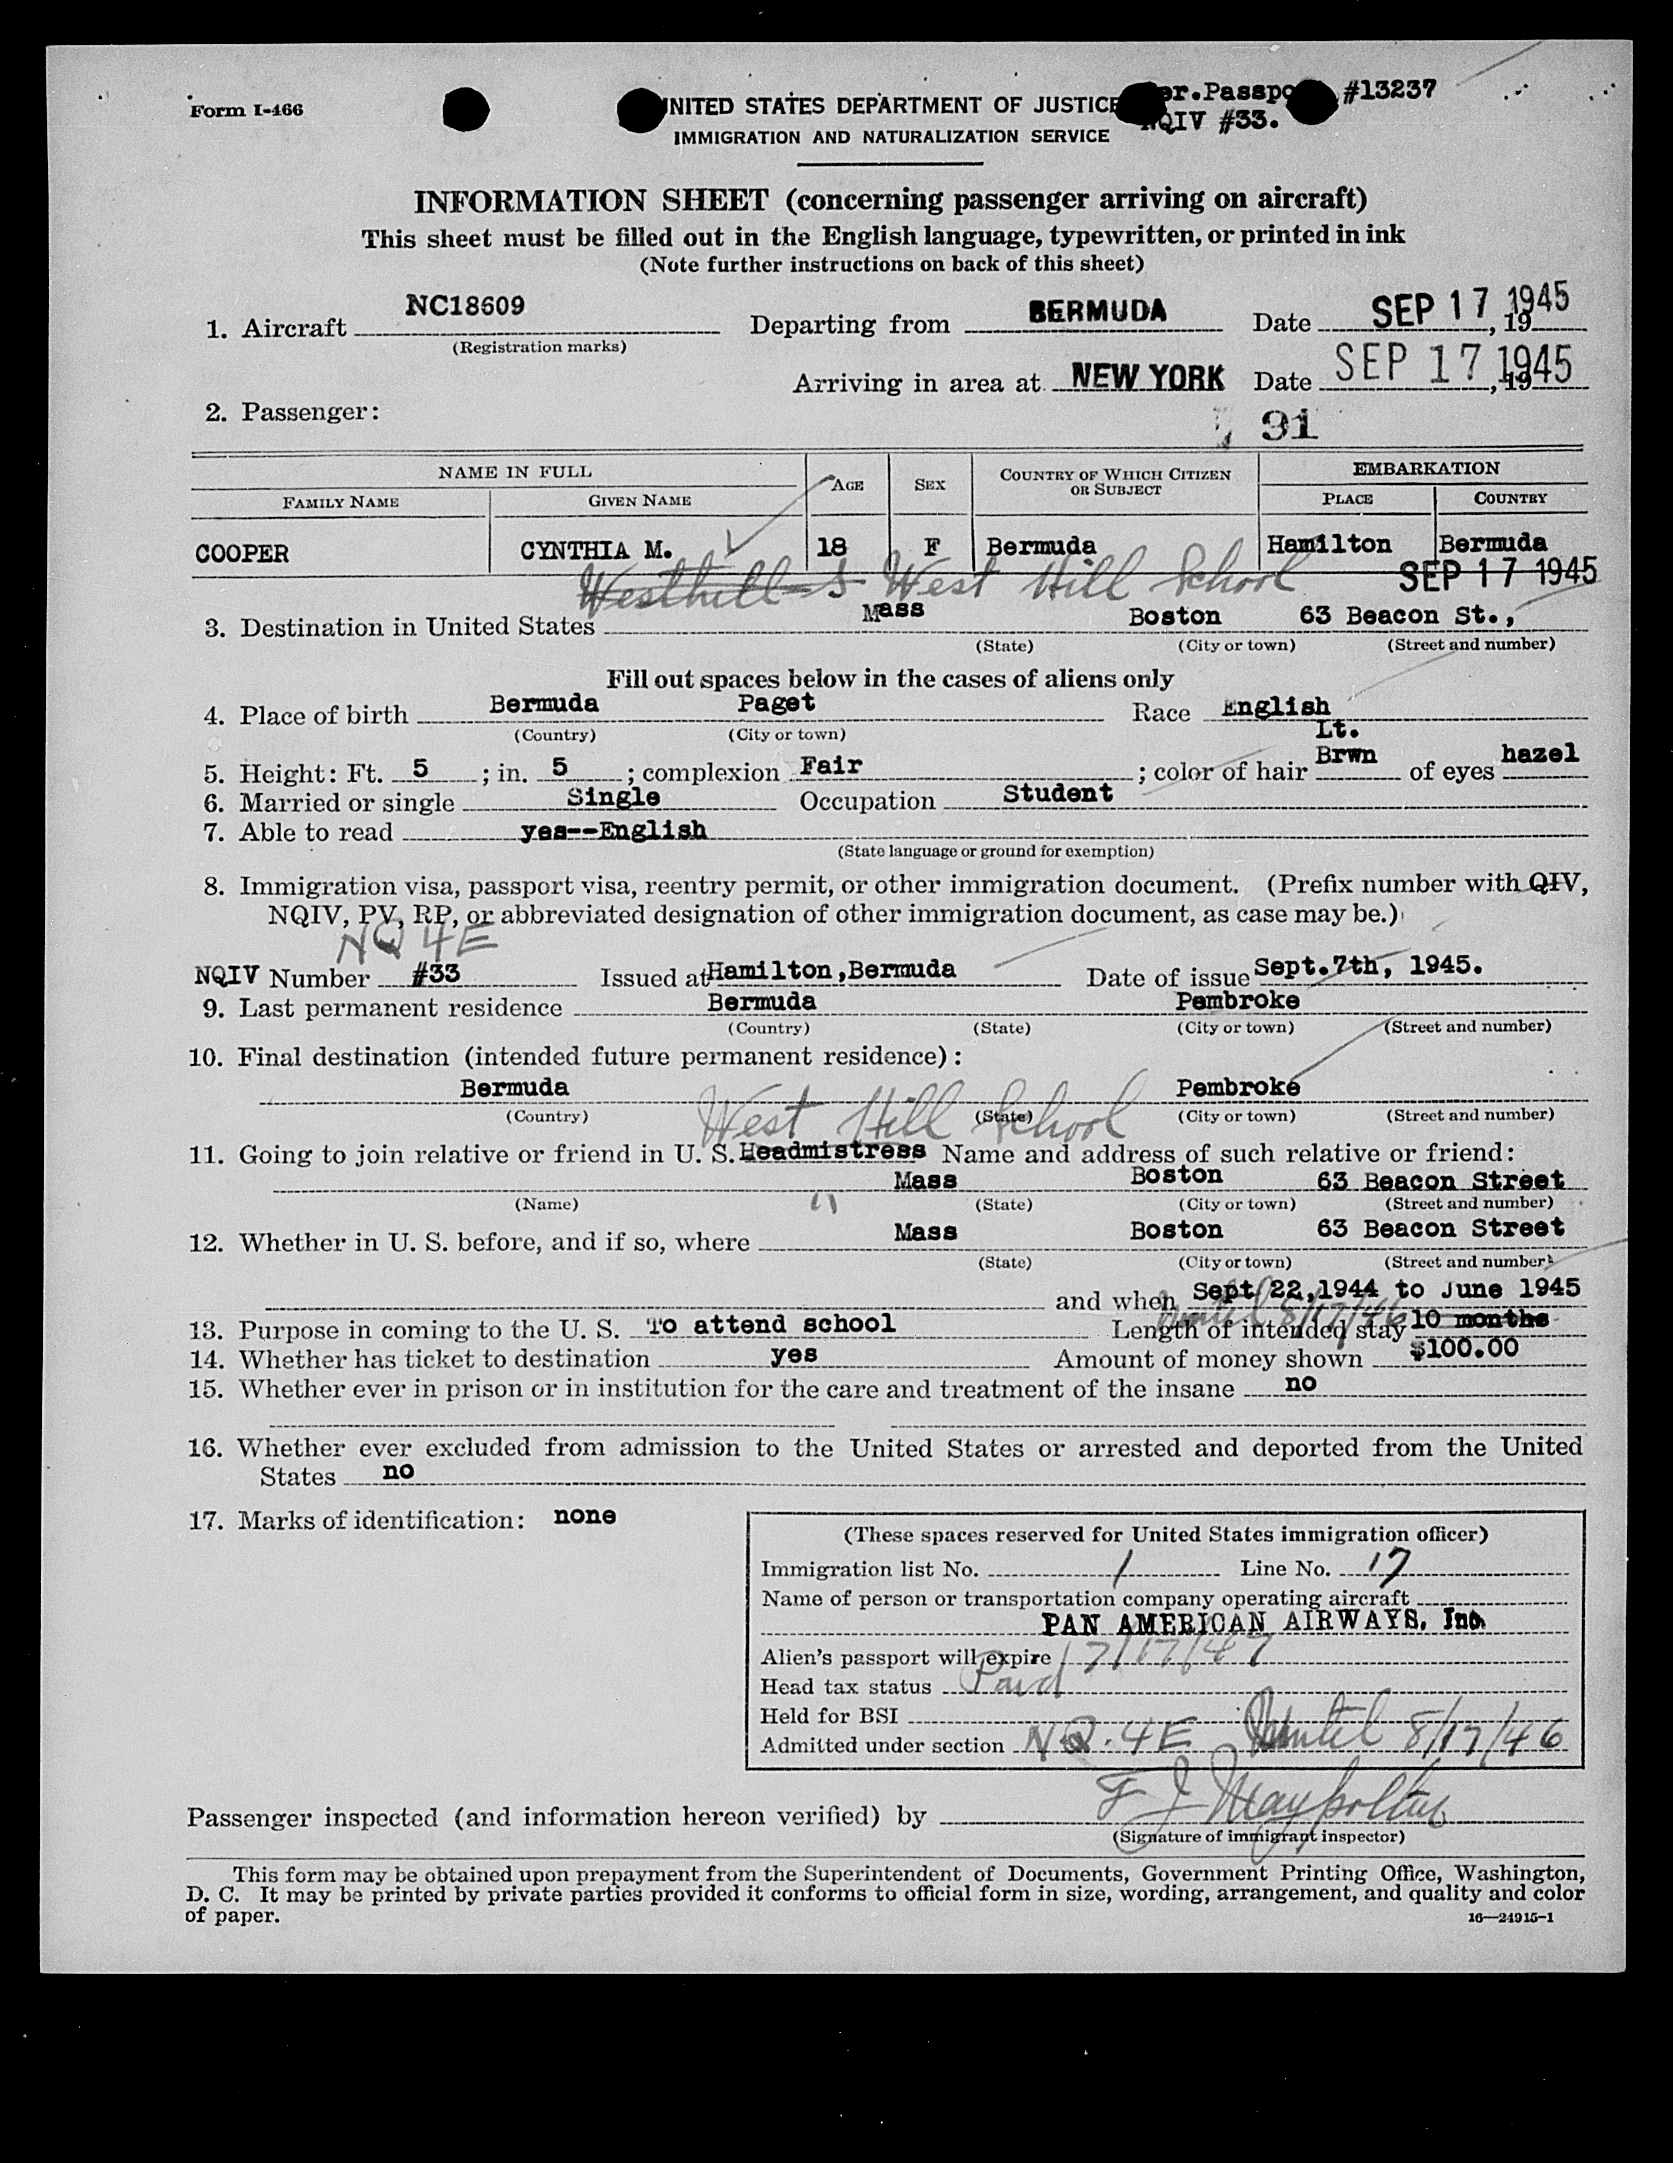 Form I-466
UNITED STATES DEPARTMENT OF JUSTICE
IMMIGRATION AND NATURALIZATION SERVICE
er.Passpo #13237
NQIV #33.
INFORMATION SHEET (concerning passenger arriving on aircraft)
This sheet must be filled out in the English language, typewritten, or printed in ink
(Note further instructions on back of this sheet)
1. Aircraft NC18609 Departing from BERMUDA Date SEP 17 1945, 19
(Registration marks)
Arriving in area at NEW YORK Date SEP 17 1945, 19
2. Passenger:
91
NAME IN FULL AGE SEX COUNTRY OF WHICH CITIZEN OR SUBJECT EMBARKATION
FAMILY NAME GIVEN NAME PLACE COUNTRY
COOPER CYNTHIA M. 18 F Bermuda Hamilton Bermuda
Westhill S West Hill School SEP 17 1945
3. Destination in United States Mass Boston 63 Beacon St.,
(State) (City or town) (Street and number)
Fill out spaces below in the cases of aliens only
4. Place of birth Bermuda Paget Race English
(Country) (City or town)
5. Height: Ft. 5; in. 5; complexion Fair; color of hair Lt. Brwn of eyes hazel
6. Married or single Single Occupation Student
7. Able to read yes--English
(State language or ground for exemption)
8. Immigration visa, passport visa, reentry permit, or other immigration document. (Prefix number with QIV,
NQIV, PV, RP, or abbreviated designation of other immigration document, as case may be.)
NQ 4E
NQIV Number #33 Issued at Hamilton,Bermuda Date of issue Sept.7th, 1945.
9. Last permanent residence Bermuda Pembroke
(Country) (State) (City or town) (Street and number)
10. Final destination (intended future permanent residence):
Bermuda Pembroke
(Country) (State) (City or town) (Street and number)
West Hill School
11. Going to join relative or friend in U. S. Headmistress Name and address of such relative or friend:
Mass Boston 63 Beacon Street
(Name) (State) (City or town) (Street and number)
12. Whether in U. S. before, and if so, where Mass Boston 63 Beacon Street
(State) (City or town) (Street and number)
and when Sept 22,1944 to June 1945
until 8/17/46
13. Purpose in coming to the U. S. To attend school Length of intended stay 10 months
14. Whether has ticket to destination yes Amount of money shown $100.00
15. Whether ever in prison or in institution for the care and treatment of the insane no
16. Whether ever excluded from admission to the United States or arrested and deported from the United
States no
17. Marks of identification: none
(These spaces reserved for United States immigration officer)
Immigration list No. 1 Line No. 17
Name of person or transportation company operating aircraft
PAN AMERICAN AIRWAYS, Inc.
Alien's passport will expire 7/17/47
Head tax status Paid
Held for BSI
Admitted under section NQ. 4E Until 8/17/46
Passenger inspected (and information hereon verified) by F J
(Signature of immigrant inspector)
This form may be obtained upon prepayment from the Superintendent of Documents, Government Printing Office, Washington,
D. C. It may be printed by private parties provided it conforms to official form in size, wording, arrangement, and quality and color
of paper.
16—24915-1